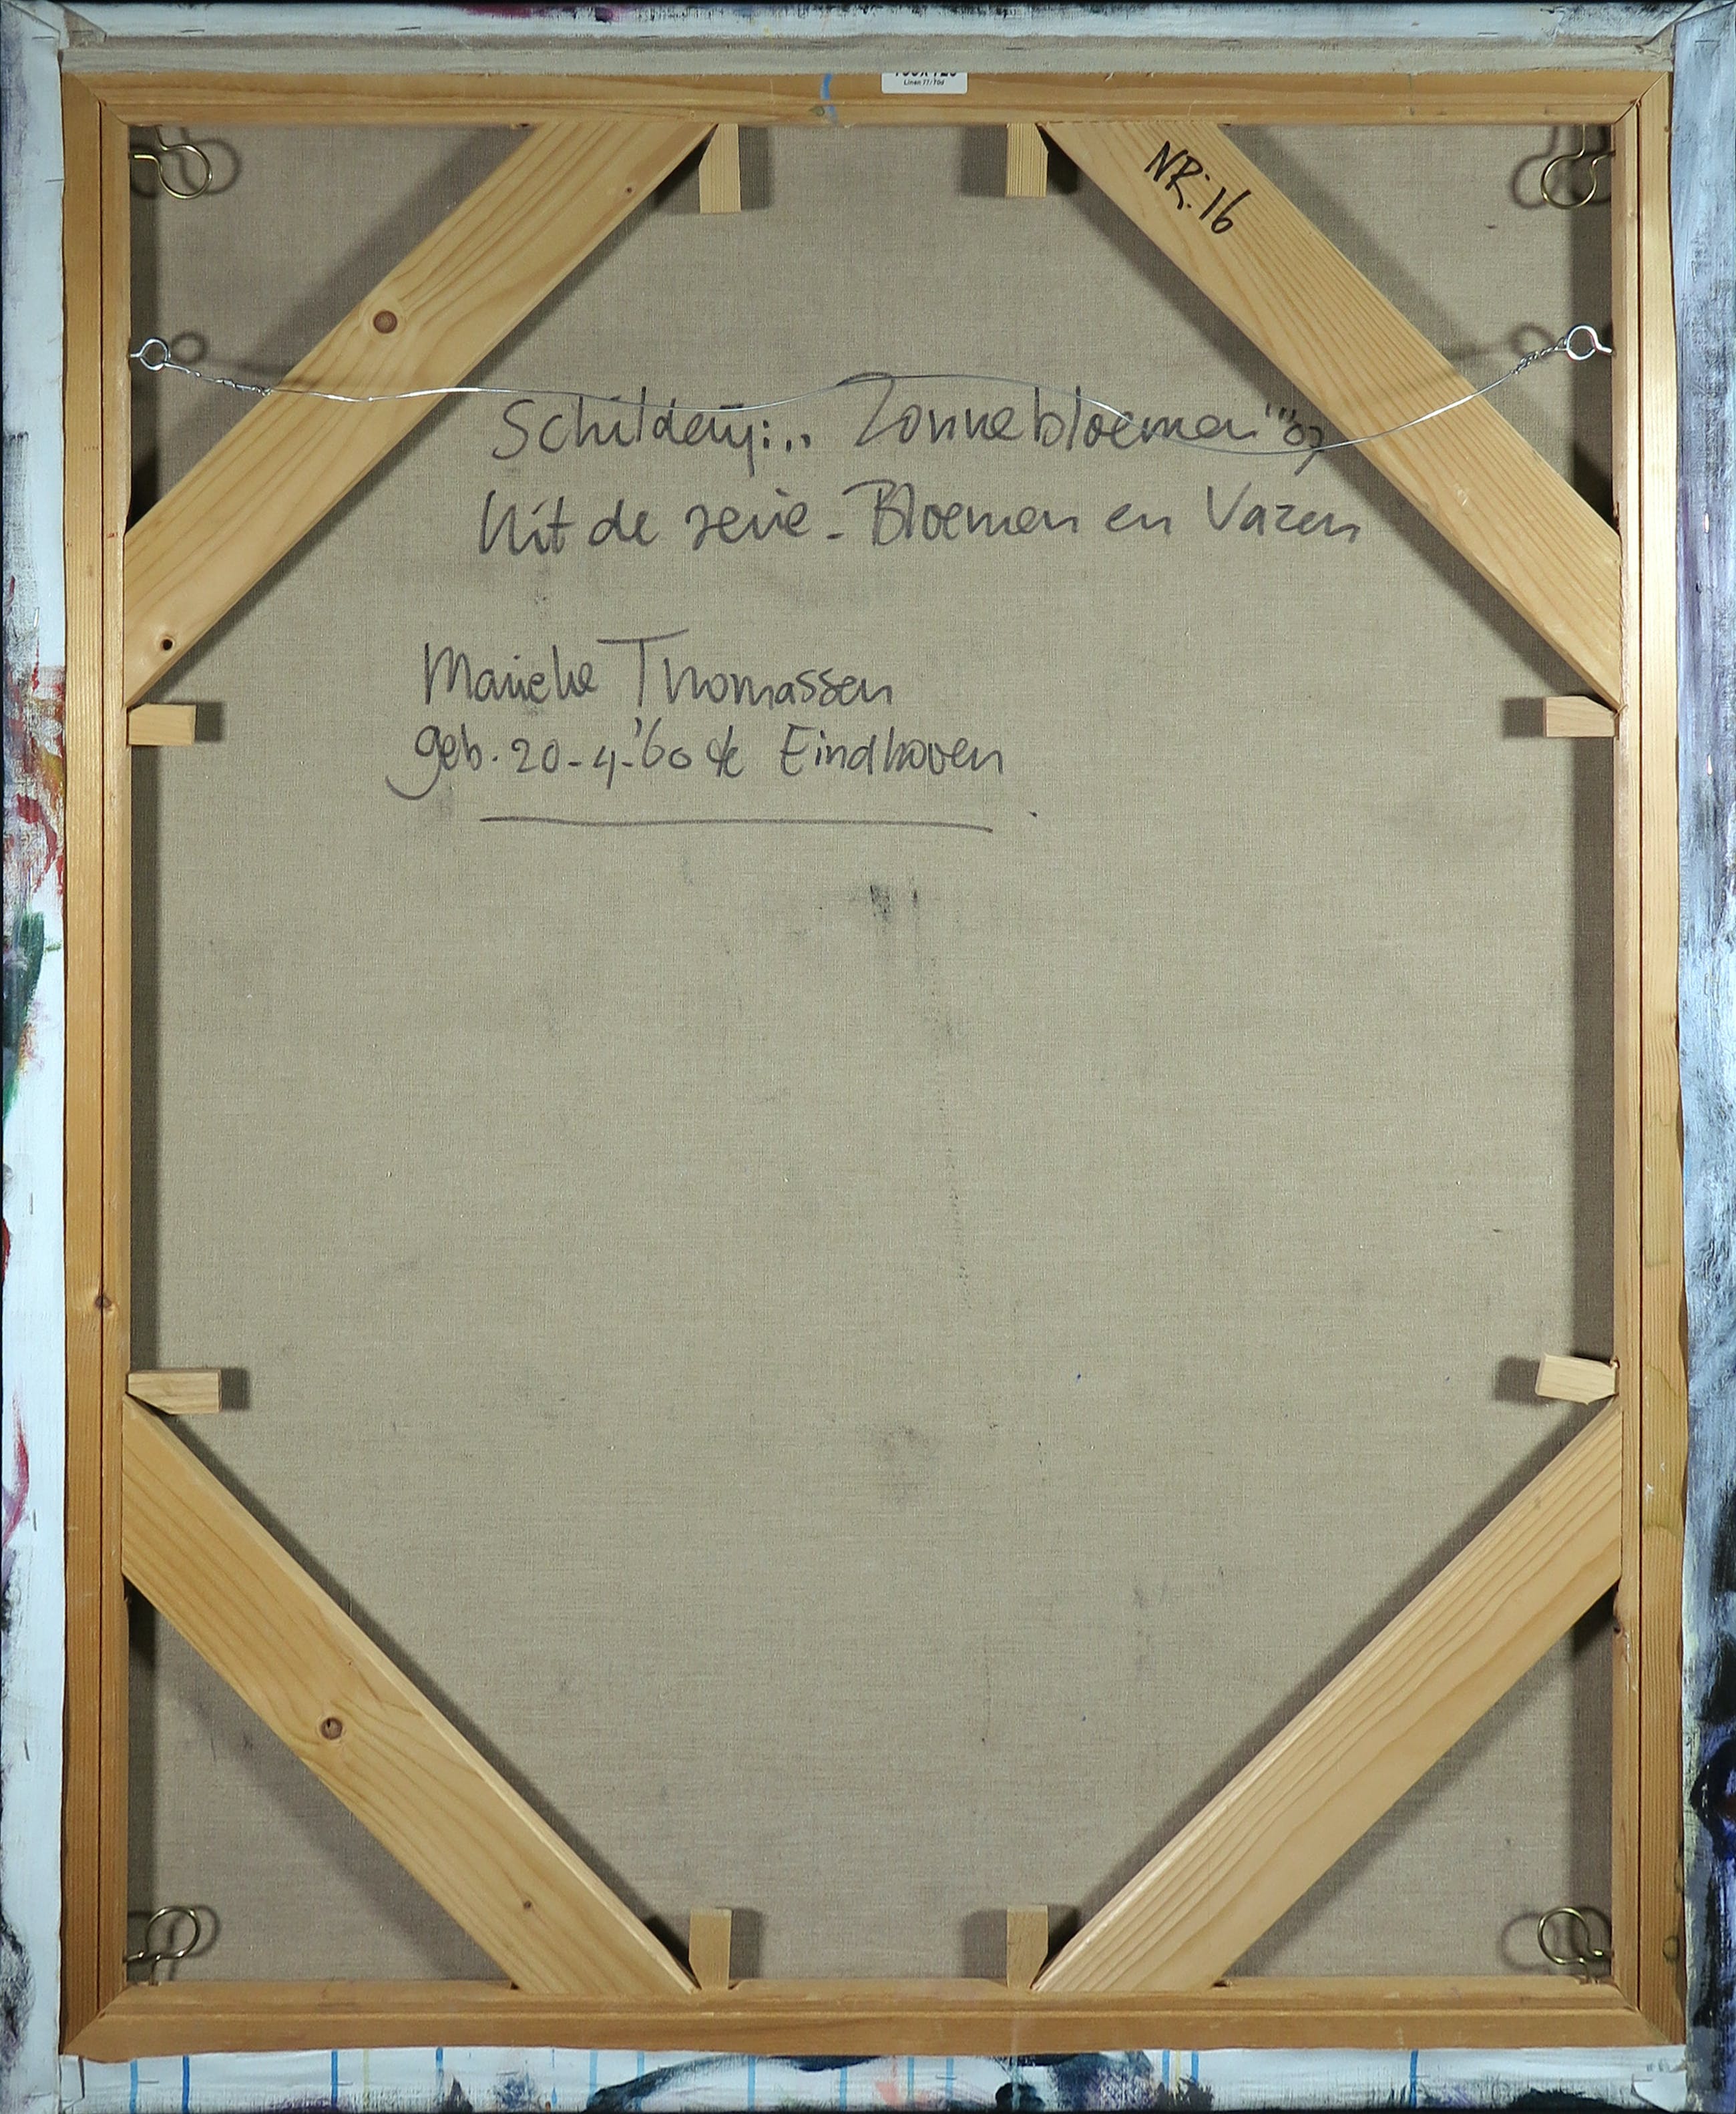 Linen 77/70d
NR: 16
Schilderij: „ Zonnebloemen" '07
Uit de serie - Bloemen en Vazen
Marieke Thomassen
geb. 20-4-'60 te Eindhoven